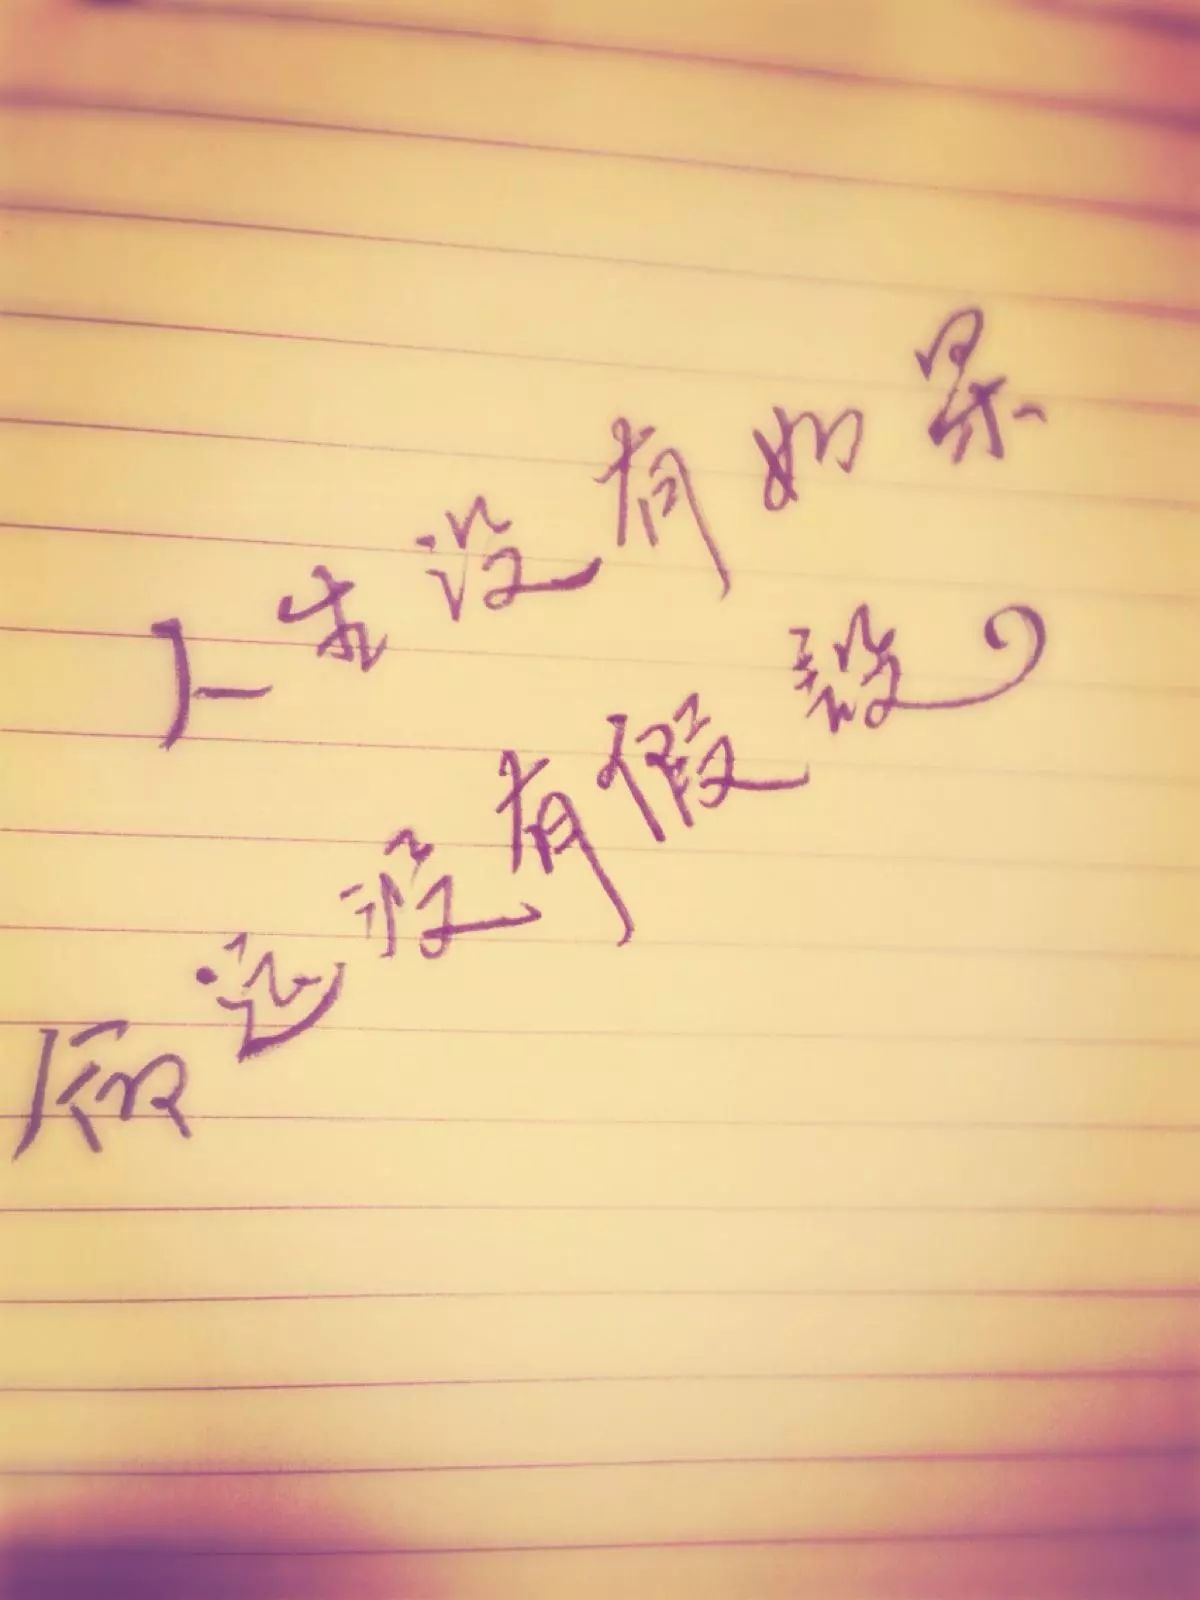 人生没有如果
命运没有假設